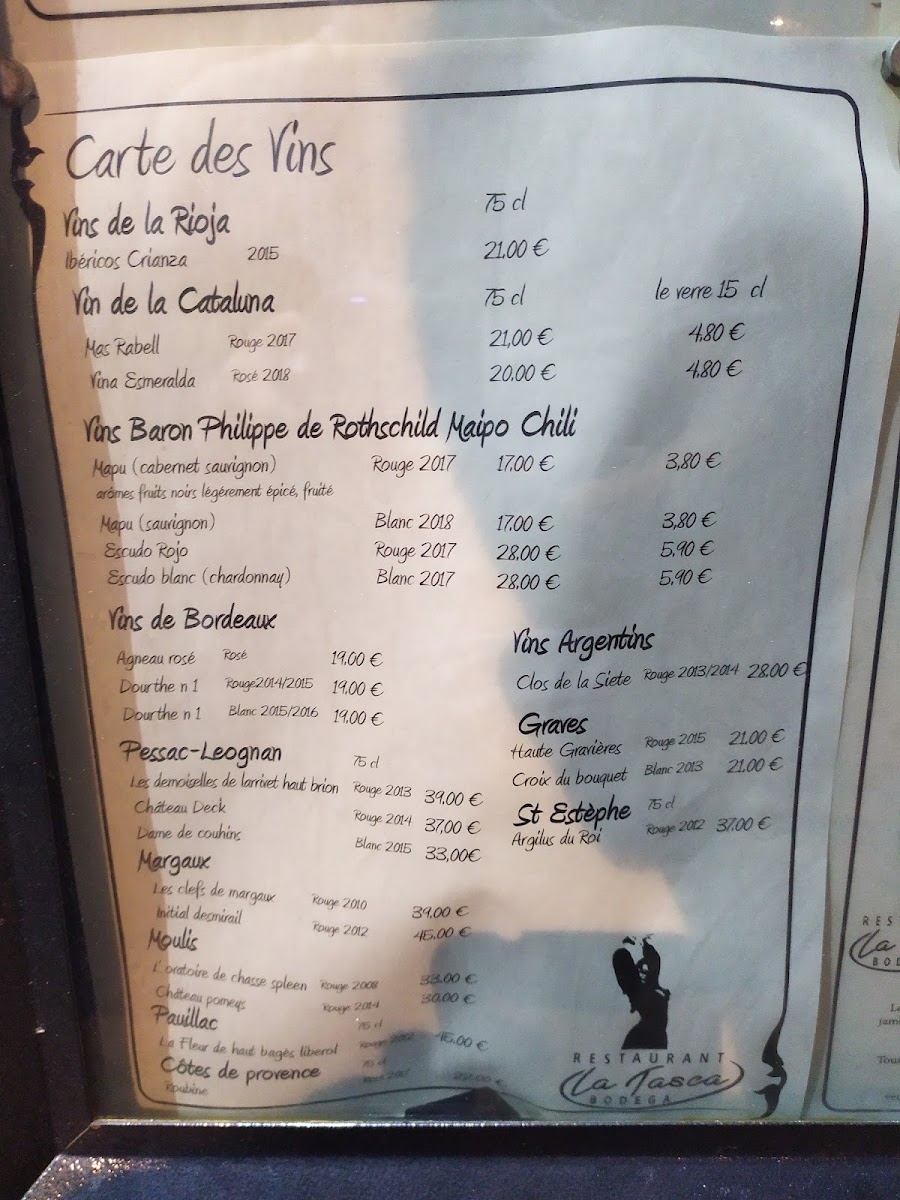 Carte des Vins
Vins de la Rioja 75 cl
Ibéricos Crianza 2015 21.00 €
Vin de la Cataluna 75 cl le verre 15 cl
Mas Rabell Rouge 2017 21,00 € 4,80 €
Vina Esmeralda Rosé 2018 20.00 € 4.80 €
Vins Baron Philippe de Rothschild Maipo Chili
Mapu (cabernet sauvignon) Rouge 2017 17.00 € 3,80 €
arômes fruits noirs légérement épicé, fruité
Mapu (sauvignon) Blanc 2018 17.00 € 3,80 €
Escudo Rojo Rouge 2017 28.00 € 5,90 €
Escudo blanc (chardonnay) Blanc 2017 28.00 € 5,90 €
Vins de Bordeaux
Agneau rosé Rosé 19.00 €
Dourthe n 1 Rouge2014/2015 19.00 €
Dourthe n 1 Blanc 2015/2016 19.00 €
Pessac-Leognan 75 cl
Les demoiselles de larrivet haut brion Rouge 2013 39.00 €
Château Deck Rouge 2014 37.00 €
Dame de couhins Blanc 2015 33,00€
Margaux
Les clefs de margaux Rouge 2010 39.00 €
Initial desmirail Rouge 2012 45.00 €
Moulis
L'oratoire de chasse spleen Rouge 2008 33.00 €
Château pomeys Rouge 2014 30.00 €
Pauillac 75 cl
La Fleur de haut bages liberal 45.00 €
Côtes de provence 75 cl
Roubine
Vins Argentins
Clos de la Siete Rouge 2013/2014 28.00 €
Graves
Haute Gravières Rouge 2015 21.00 €
Croix du bouquet Blanc 2013 21.00 €
St Estèphe 75 cl
Argilus du Roi Rouge 2012 37.00 €
RESTAURANT
La Tasca
BODEGA